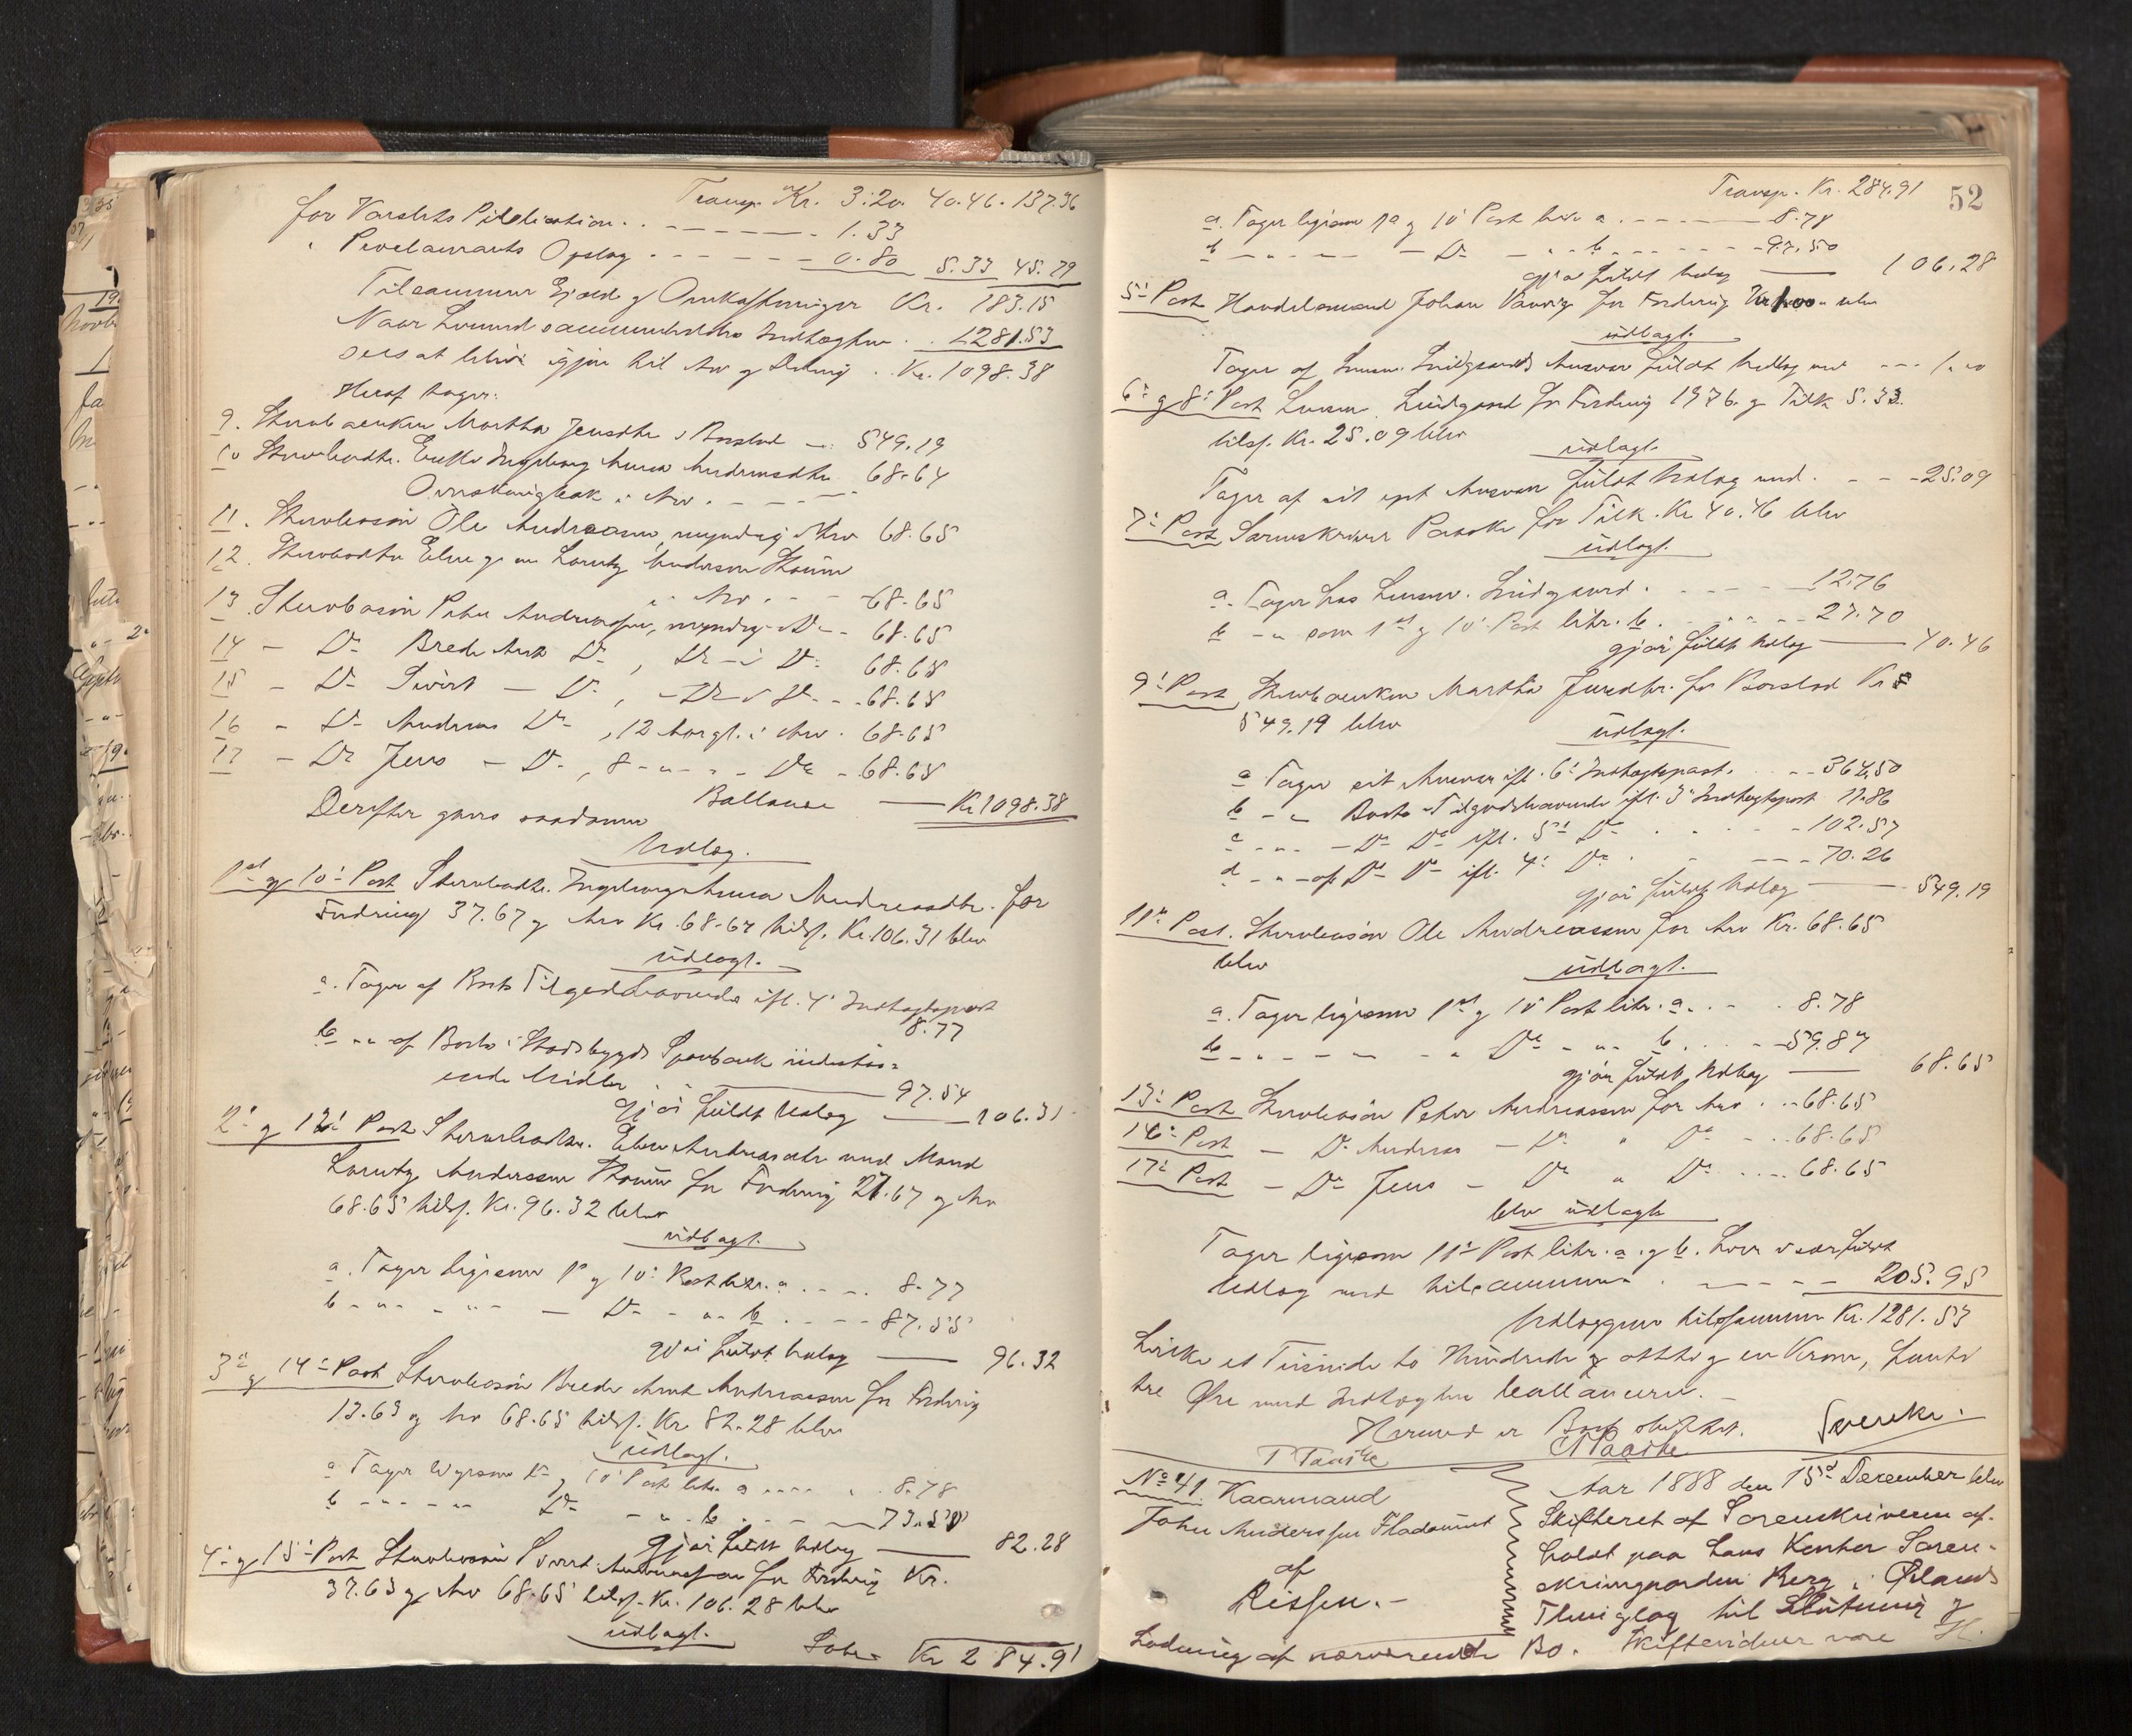 Transp. Kr. 3.20. 40.46. 137.36
for Varslets Publication . . 1.33
" Proclamaets Opslag . . . 0.80 5.33 45.79
Tilsammen Gjæld og Omkostninger Kr. 183.15
Naar herved sammenholdes Indtægten . . 1281.53
sees at blive igjen til Arv og Deling . . Kr. 1098.38
Heraf tager:
9. Sterboenken Martha Jensdtr. i Boeslod 549.19
10 Sterbodtr. Ingeborg Anna Andreasdtr. 68.64
i Arv .
11. Sterbosøn Ole Andreassen, myndig i Arv 68.65
12. Sterbodtr. Elen g. m. Lorentz Anderssen
i Arv 68.65
13. Sterbosøn Peter Andreassen, myndig i Do 68.65
14 - Do Brede Arnt Do , Do i Do 68.65
15 - Do Sivert - Do , - Do i Do - 68.65
16 - Do Andreas Do , 12 Aar gl. i Arv . 68.65
17 - Do Jens - Do , 8 - " - " - Do - 68.65
Ballance Kr 1098.38
Derefter gjøres saadanne
Udlæg.
1ste og 10de Post Sterbodtr. Ingeborg Anna Andreasdtr. for
Fordring 37.67 og Arv Kr. 68.64 tils. Kr. 106.31 blev
udlagt.
a. Tager af Boets Tilgodehavende ifl. 4de Indtægtspost
8.77
b " " af Boets i Stadsbygds Sparebank indestaa=
ende Midler 97.54
gjør fuldt Udlæg 106.31
2de og 12te Post Sterbodtr. Elen Andreasdtr. med Mand
Lorentz Anderssen for Fordring 27.67 og Arv
68.65 tils. Kr. 96.32 blev
udlagt.
a. Tager ligesom 1ste og 10de Post litr. a . . . 8.77
b - " - " - " - Do - " - b . . . 87.55
gjør fuldt Udlæg 96.32
3de og 14de Post Sterbosøn Brede Arnt Andreassen for Fordring
13.63 og Arv 68.65 tils. Kr 82.28 blev
udlagt.
a Tager ligesom 1ste og 10de Post litr. a . . . 8.78
b - - - " Do - " - b . . . 73.50
gjør fuldt Udlæg 82.28
4de og 15de Post Sterbosøn Sivert Andreassen for Fordring Kr.
37.63 og Arv 68.65 tils. Kr. 106.28 blev
udlagt.
Kr 284.91
52
Transp. Kr. 284.91
a. Tager ligesom 1ste og 10de Post litr a . . . 8.78
b " - " - " - Do - " - b . . . 97.50
gjør fuldt Udlæg 106.28
5te Post Handelsmand Johan for Fordring Kr 1.00 blev
udlagt.
Tager af Lensm. Lindgaards Ansvar fuldt Udlæg med . . . 1.00
6te og 8de Post Lensm. Lindgaard for Fordring 19.76 og Tilk 5.33.
tils. Kr. 25.09 blev
udlagt.
Tager af sit eget Ansvar fuldt Udlæg med . . . 25.09
7de Post Sorenskriver Paaske for Tilk. Kr 40.46 blev
udlagt.
a. Tager hos Lensm. Lindgaard . . . 12.76
b - " som 1ste og 10de Post litr. b . . . 27.70
gjør fuldt Udlæg 40.46
9de Post Sterboenken Martha Jensdtr. for Boeslod Kr
549.19 blev
udlagt.
a Tager sit Ansvar ifl. 6te Indtægtspost . . 364.50
b - " Boets Tilgodehavende ifl. 3de Indtægtspost 11.86
c - " - Do Do ifl. 5te Do . . . 102.57
d - " - af Do Do ifl. 4de Do . . . 70.26
gjør fuldt Udlæg 549.19
11te Post. Sterbosøn Ole Andreassen for Arv Kr. 68.65
blev
udlagt.
a. Tager ligesom 1ste og 10de Post litr. a . . . 8.78
b - " - " - " Do - " - b . . . 59.87
gjør fuldt Udlæg 68.65
13de Post Sterbosøn Peter Andreassen for Arv . . 68.65
16de Post - Do Andreas - Do " Do . . 68.65
17de Post - Do Jens - Do " Do . . . 68.65
blev udlagt
Tager ligesom 11te Post litr. a. og b. hver især fuldt
Udlæg med tilsammen . . . 205.95
Udlæggene tilsammen Kr. 1281.53
hvilke et Tusinde to Hundrede og otteti og en Krone, femti
tre Øre med Indtægten ballancerer. -
Hermed er Boet sluttet.
Paaske
No 41. Kaarmand
Johan Anderssen
af
Rissen. -
Aar 1888 den 15de December blev
Skifteret af Sorenskriveren af=
holdt paa hans Kontor Soren=
skrivergaarden Berg i Ørlands
Thinglag til Slutning og
Lodning af nærværende Bo. Skiftevidner vare H.